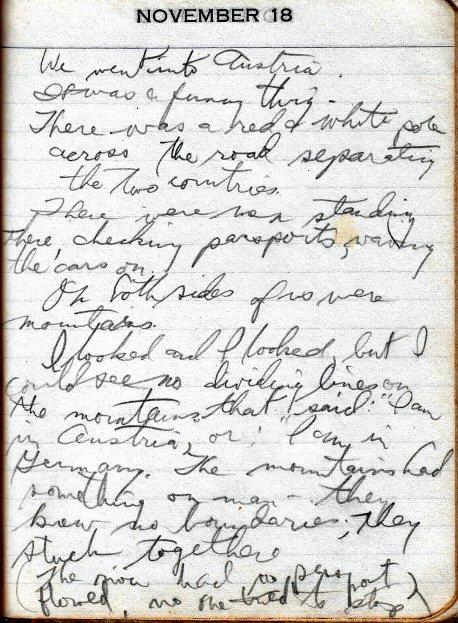 NOVEMBER 18
We went into Austria.
It was a funny thing -
There was a red & white pole
across the road separating
the two countries.
There were men standing
there, checking passports, waving
the cars on.
On both sides of us were
mountains.
I looked and I looked, but I
could see no dividing lines on
the mountains that said: "I am
in Austria," or: "I am in
Germany. The mountains had
something on man - they
know no boundaries; They
stuck together
(The river had no passport)
flowed, no one tried to stop